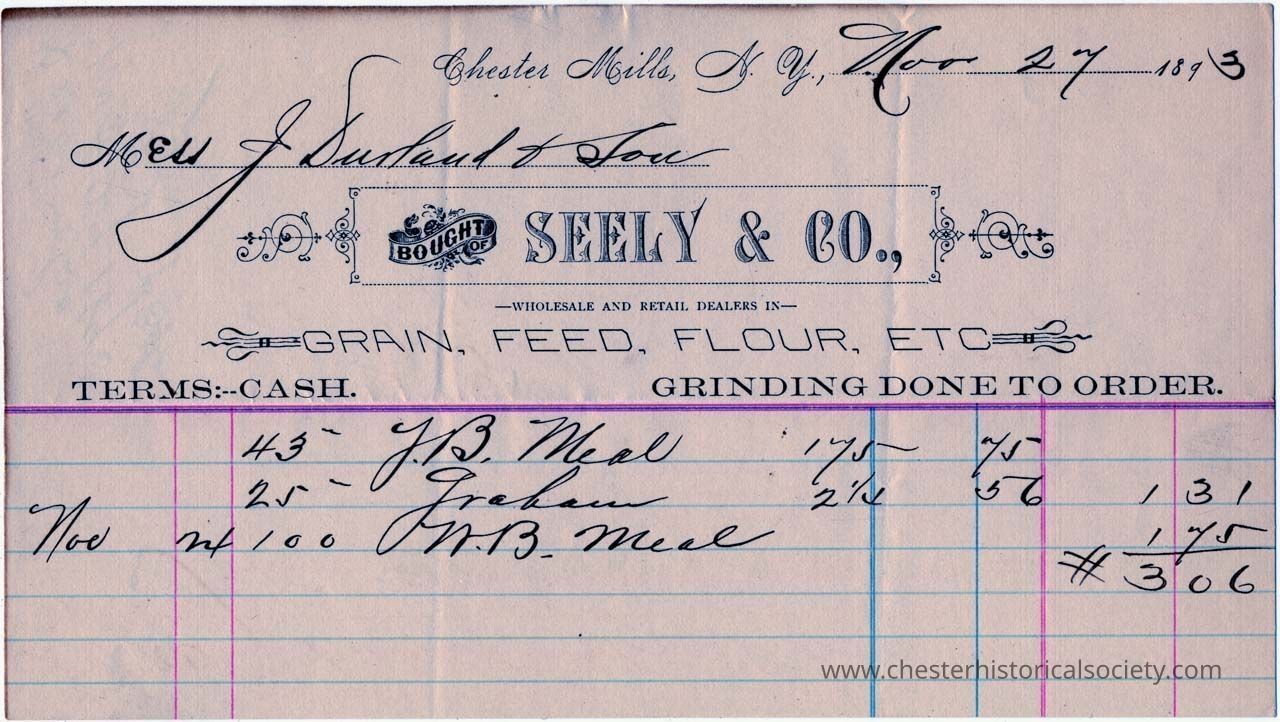 Chester Mills, N. Y., Nov 27 1893
Mess J Durland & Son
BOUGHT OF SEELY & CO.,
—WHOLESALE AND RETAIL DEALERS IN—
GRAIN, FEED, FLOUR, ETC
TERMS:--CASH. GRINDING DONE TO ORDER.
43 B. Meal 175 75
25 Graham 2¼ 56 1 31
Nov 100 B. Meal 1 75
# 3 06
www.chesterhistoricalsociety.com